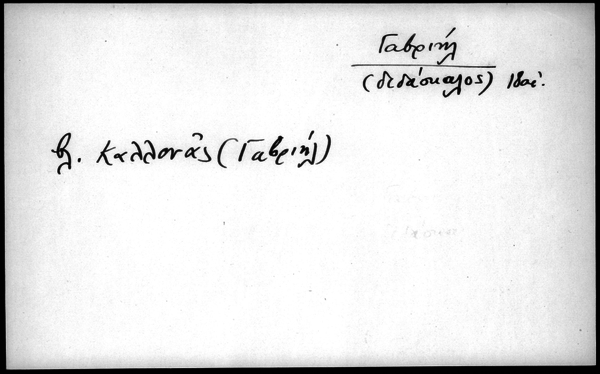 Γαβριήλ
(διδάσκαλος) 18ος αἰ.
βλ. Καλλονᾶς (Γαβριήλ)